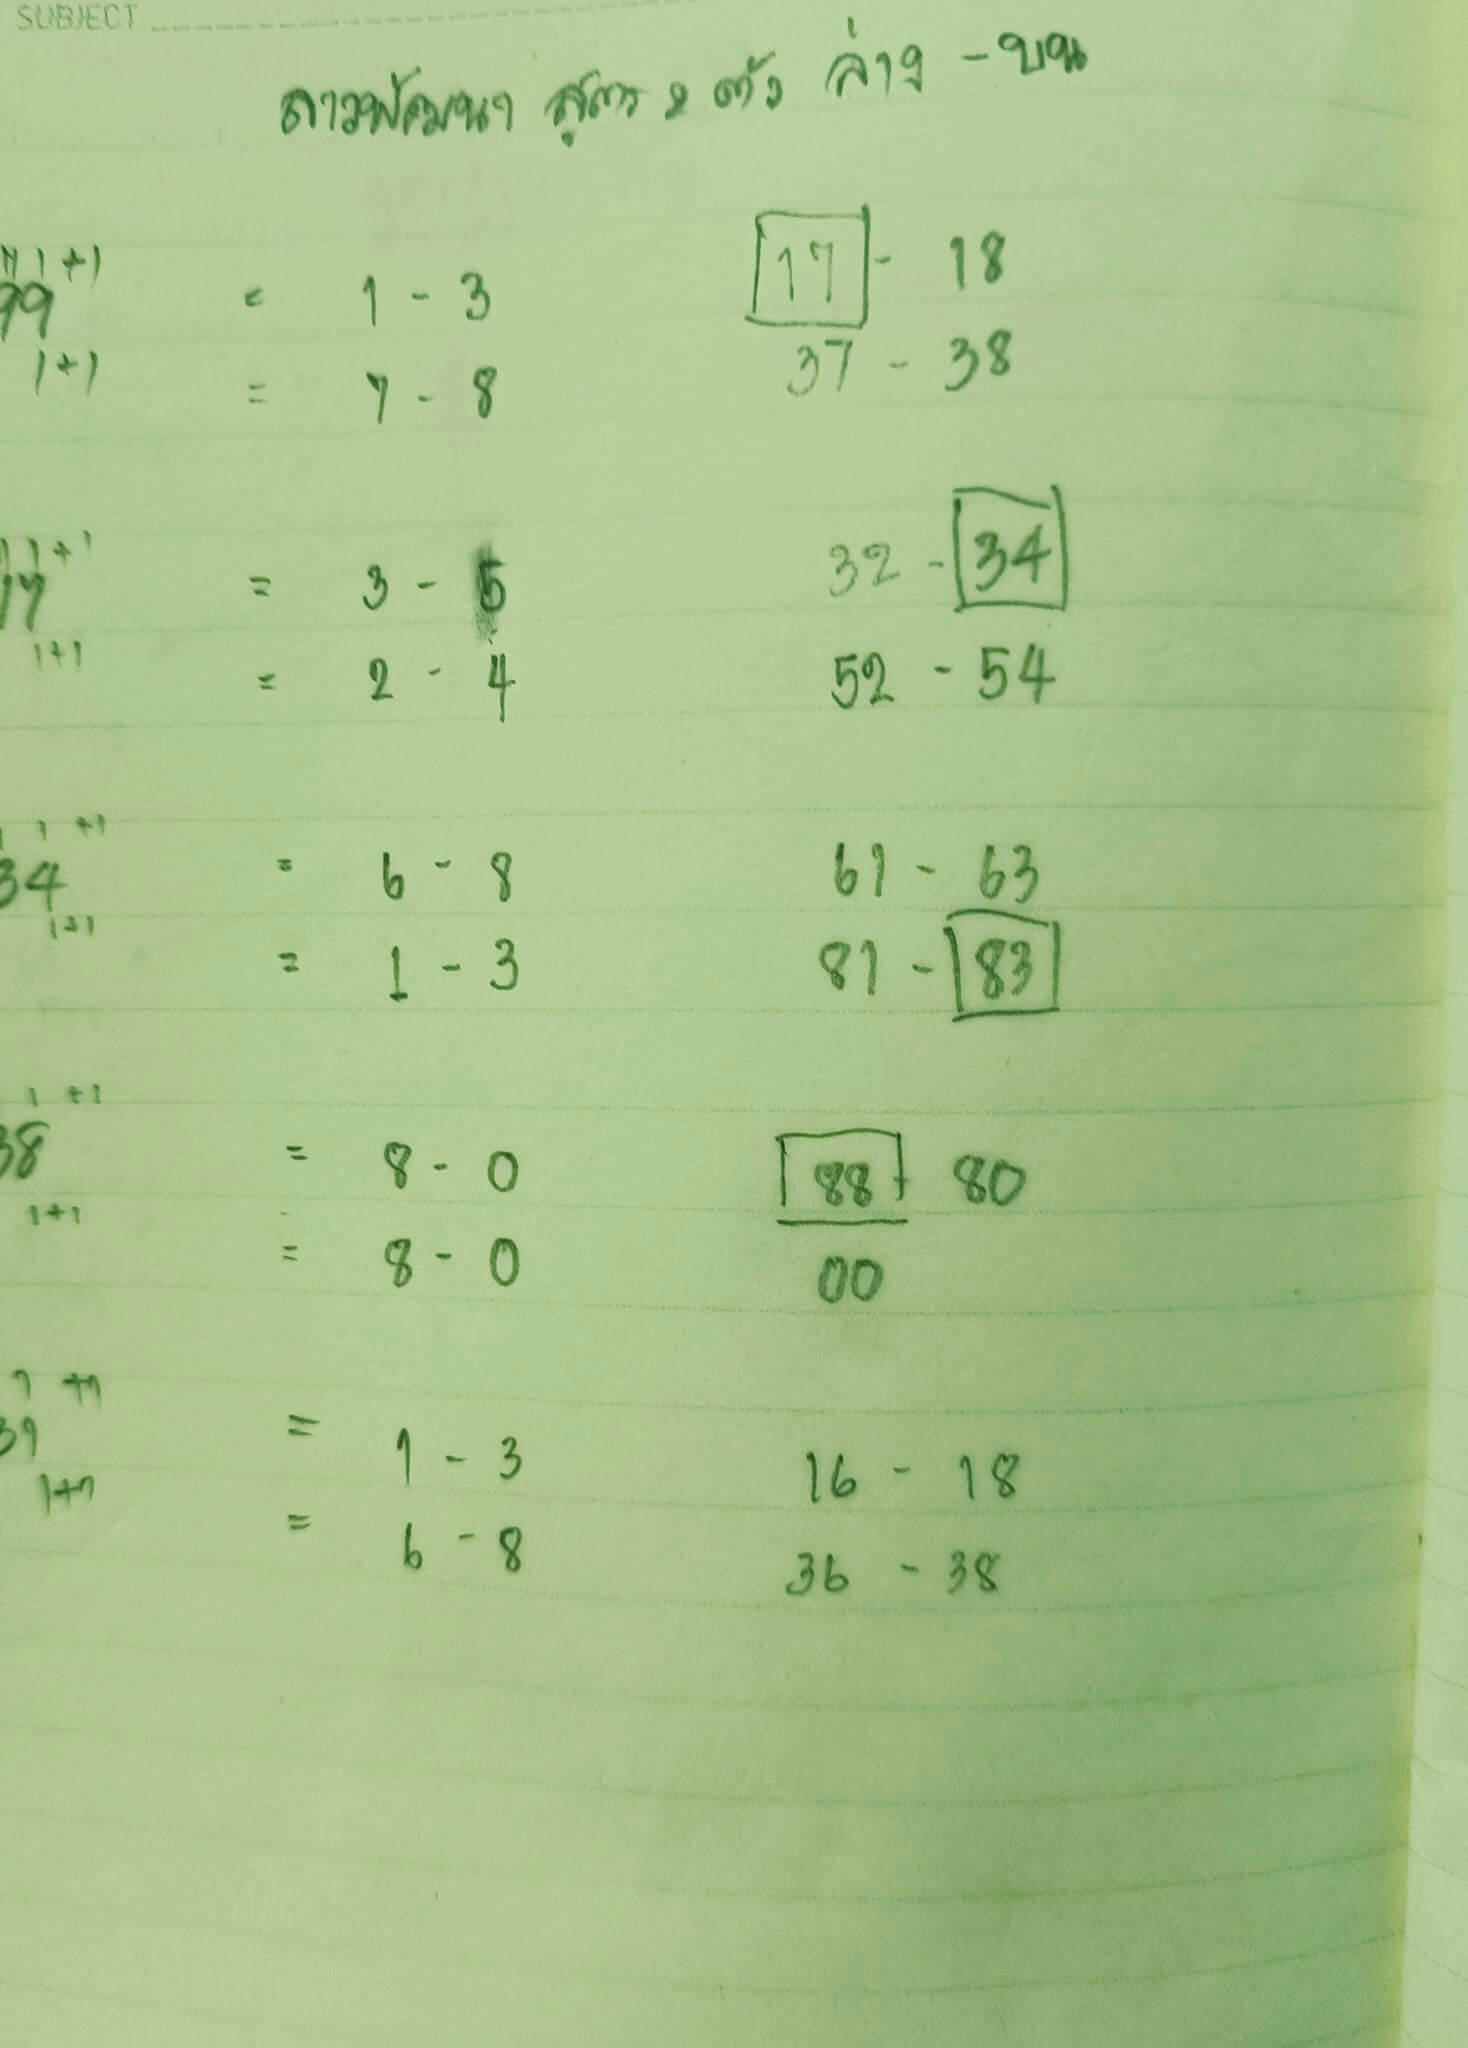 SUBJECT
ลาวพัฒนา สูตร 2 ตัว ล่าง - บน
1 +1
99 = 1 - 3 17 - 18
1+1 = 7 - 8 37 - 38
1 1 +1
17 = 3 - 5 32 - 34
1+1 = 2 - 4 52 - 54
1 1 +1
34 = 6 - 8 61 - 63
1+1 = 1 - 3 81 - 83
1 +1
38 = 8 - 0 88 - 80
1+1 = 8 - 0 00
1 +1
= 1 - 3 16 - 18
1+1 = 6 - 8 36 - 38